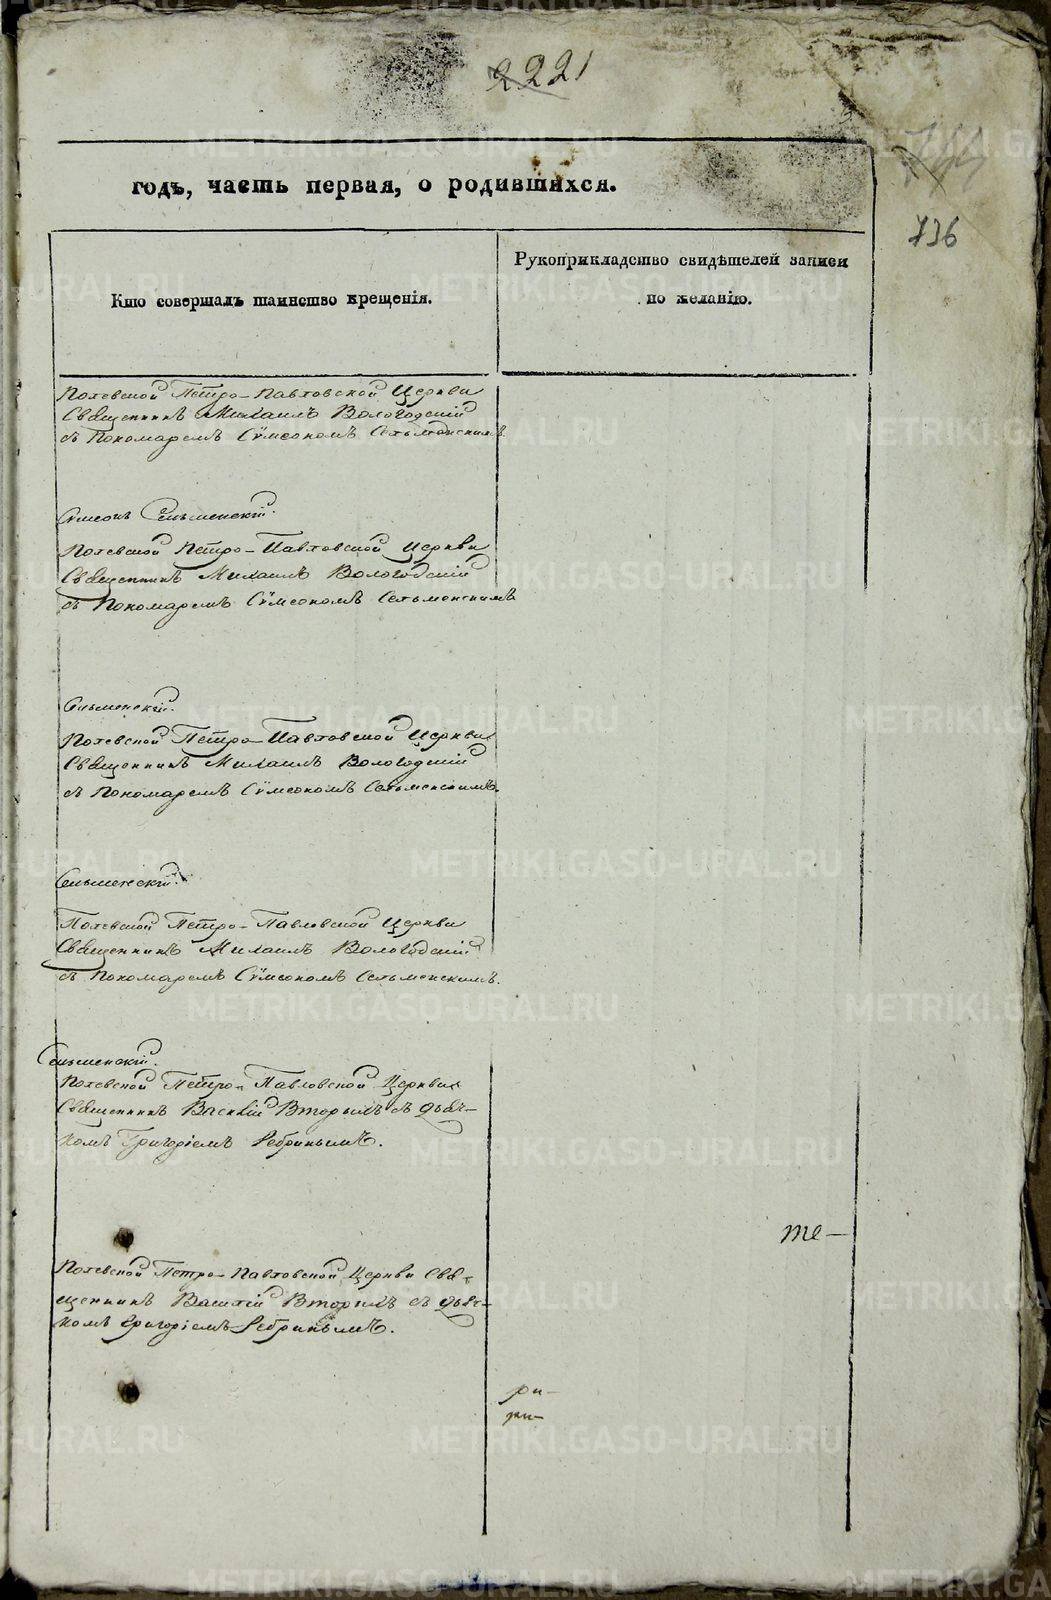 2221
736
годъ, часть первая, о родившихся.
Кто совершалъ таинство крещенія.
Рукоприкладство свидѣтелей записи
по желанію.
Полевской Петро-Павловской Церкви
Священникъ Михаилъ Вологодскій
съ Пономаремъ Сѵмеономъ Сельменскимъ.
Сѵмеонъ Сельменскій.
Полевской Петро-Павловской Церкви
Священникъ Михаилъ Вологодскій
съ Пономаремъ Сѵмеономъ Сельменскимъ
Сельменскій.
Полевской Петро-Павловской Церкви
Священникъ Михаилъ Вологодскій
съ Пономаремъ Сѵмеономъ Сельменскимъ.
Сельменскій.
Полевской Петро-Павловской Церкви
Священникъ Михаилъ Вологодскій
съ Пономаремъ Сѵмеономъ Сельменскимъ.
Сельменскій.
Полевской Петро-Павловской Церкви
Священникъ Василій Вторыхъ съ дьяч-
комъ Григоріемъ Ребринымъ.
те-
Полевской Петро-Павловской Церкви Свя-
щенникъ Василій Вторыхъ съ дьяч-
комъ Григоріемъ Ребринымъ.
ри-
METRIKI.GASO-URAL.RU